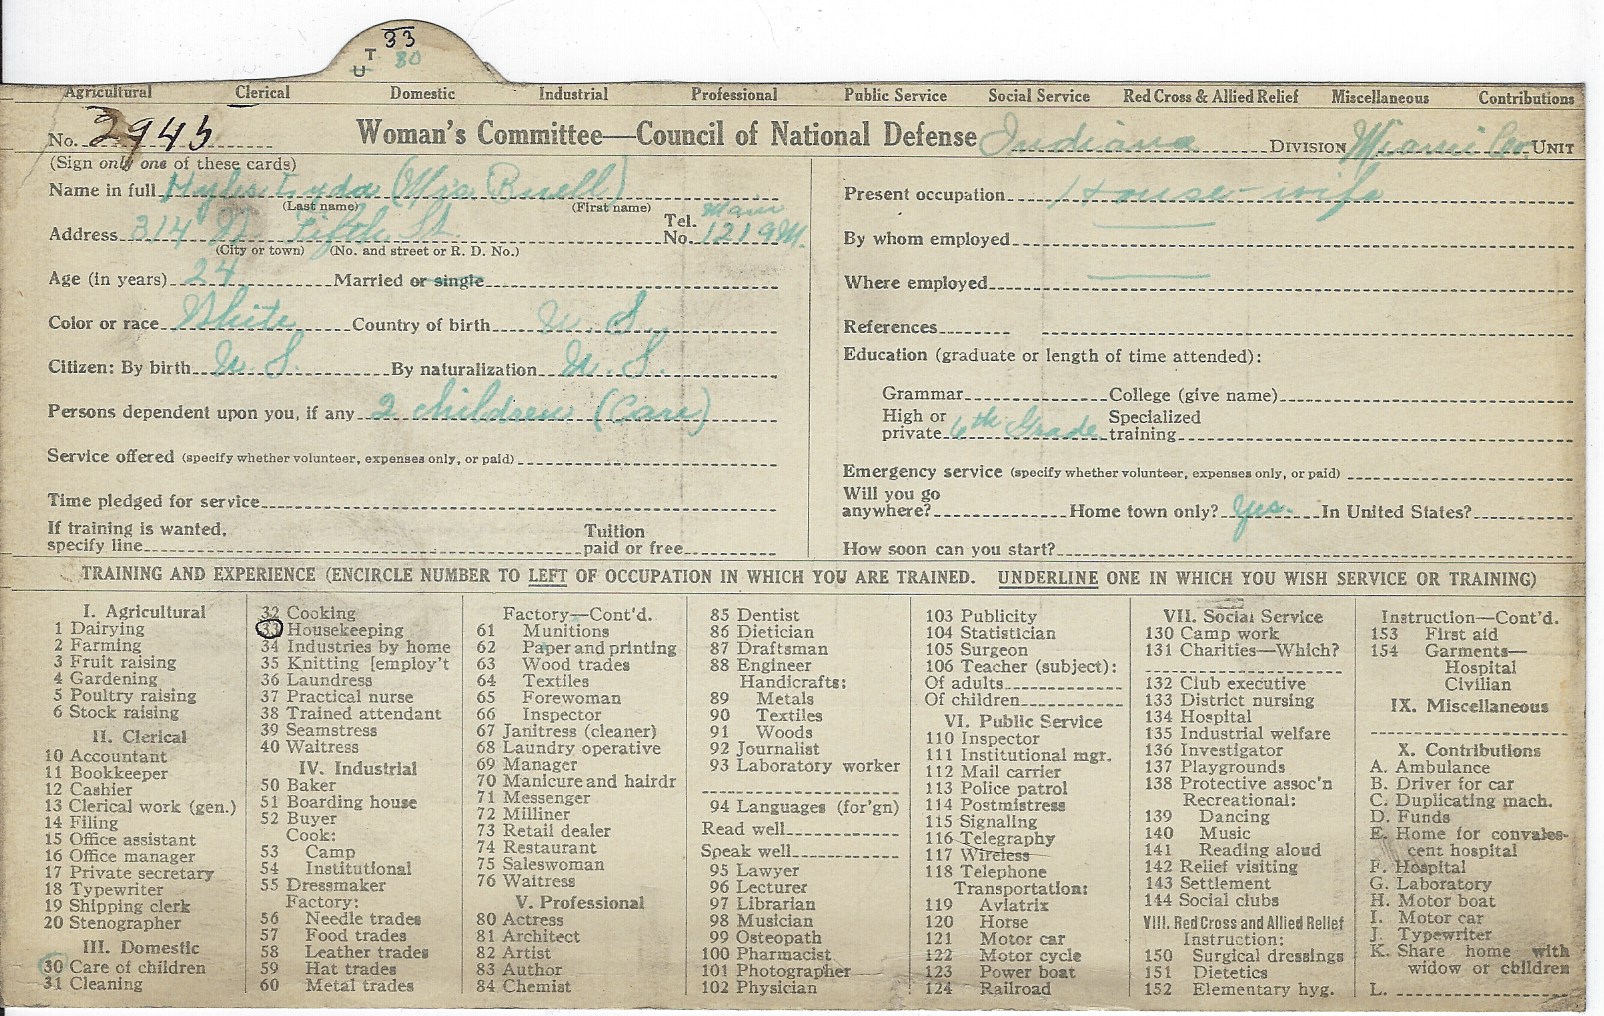 33
T 30
U
Agricultural Clerical Domestic Industrial Professional Public Service Social Service Red Cross & Allied Relief Miscellaneous Contributions
No. 2945 Woman's Committee—Council of National Defense Indiana DIVISION Miami Co. UNIT
(Sign only one of these cards)
Name in full Lyda (Mrs Buell)
(Last name) (First name)
Address 314 W. Fifth St. Tel. No. Main 1219M.
(City or town) (No. and street or R. D. No.)
Age (in years) 24 Married or single
Color or race White Country of birth U. S.
Citizen: By birth U. S. By naturalization U. S.
Persons dependent upon you, if any 2 children (Care)
Service offered (specify whether volunteer, expenses only, or paid)
Time pledged for service
If training is wanted, specify line Tuition paid or free
Present occupation House-wife
By whom employed
Where employed
References
Education (graduate or length of time attended):
Grammar College (give name)
High or private 6th Grade Specialized training
Emergency service (specify whether volunteer, expenses only, or paid)
Will you go anywhere? Home town only? Yes. In United States?
How soon can you start?
TRAINING AND EXPERIENCE (ENCIRCLE NUMBER TO LEFT OF OCCUPATION IN WHICH YOU ARE TRAINED. UNDERLINE ONE IN WHICH YOU WISH SERVICE OR TRAINING)
I. Agricultural
1 Dairying
2 Farming
3 Fruit raising
4 Gardening
5 Poultry raising
6 Stock raising
II. Clerical
10 Accountant
11 Bookkeeper
12 Cashier
13 Clerical work (gen.)
14 Filing
15 Office assistant
16 Office manager
17 Private secretary
18 Typewriter
19 Shipping clerk
20 Stenographer
III. Domestic
30 Care of children
31 Cleaning
32 Cooking
33 Housekeeping
34 Industries by home
35 Knitting [employ't
36 Laundress
37 Practical nurse
38 Trained attendant
39 Seamstress
40 Waitress
IV. Industrial
50 Baker
51 Boarding house
52 Buyer
Cook:
53 Camp
54 Institutional
55 Dressmaker
Factory:
56 Needle trades
57 Food trades
58 Leather trades
59 Hat trades
60 Metal trades
Factory—Cont'd.
61 Munitions
62 Paper and printing
63 Wood trades
64 Textiles
65 Forewoman
66 Inspector
67 Janitress (cleaner)
68 Laundry operative
69 Manager
70 Manicure and hairdr
71 Messenger
72 Milliner
73 Retail dealer
74 Restaurant
75 Saleswoman
76 Waitress
V. Professional
80 Actress
81 Architect
82 Artist
83 Author
84 Chemist
85 Dentist
86 Dietician
87 Draftsman
88 Engineer
Handicrafts:
89 Metals
90 Textiles
91 Woods
92 Journalist
93 Laboratory worker
94 Languages (for'gn)
Read well
Speak well
95 Lawyer
96 Lecturer
97 Librarian
98 Musician
99 Osteopath
100 Pharmacist
101 Photographer
102 Physician
103 Publicity
104 Statistician
105 Surgeon
106 Teacher (subject):
Of adults
Of children
VI. Public Service
110 Inspector
111 Institutional mgr.
112 Mail carrier
113 Police patrol
114 Postmistress
115 Signaling
116 Telegraphy
117 Wireless
118 Telephone
Transportation:
119 Aviatrix
120 Horse
121 Motor car
122 Motor cycle
123 Power boat
124 Railroad
VII. Social Service
130 Camp work
131 Charities—Which?
132 Club executive
133 District nursing
134 Hospital
135 Industrial welfare
136 Investigator
137 Playgrounds
138 Protective assoc'n
Recreational:
139 Dancing
140 Music
141 Reading aloud
142 Relief visiting
143 Settlement
144 Social clubs
VIII. Red Cross and Allied Relief
Instruction:
150 Surgical dressings
151 Dietetics
152 Elementary hyg.
Instruction—Cont'd.
153 First aid
154 Garments—
Hospital
Civilian
IX. Miscellaneous
X. Contributions
A. Ambulance
B. Driver for car
C. Duplicating mach.
D. Funds
E. Home for convales-
cent hospital
F. Hospital
G. Laboratory
H. Motor boat
I. Motor car
J. Typewriter
K. Share home with
widow or children
L.